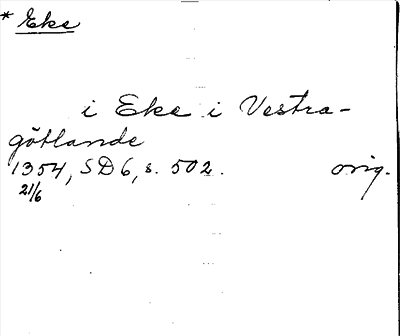 * Eke
i Eke i Vestra-
götlande
1354, SD 6, s. 502. orig.
21/6